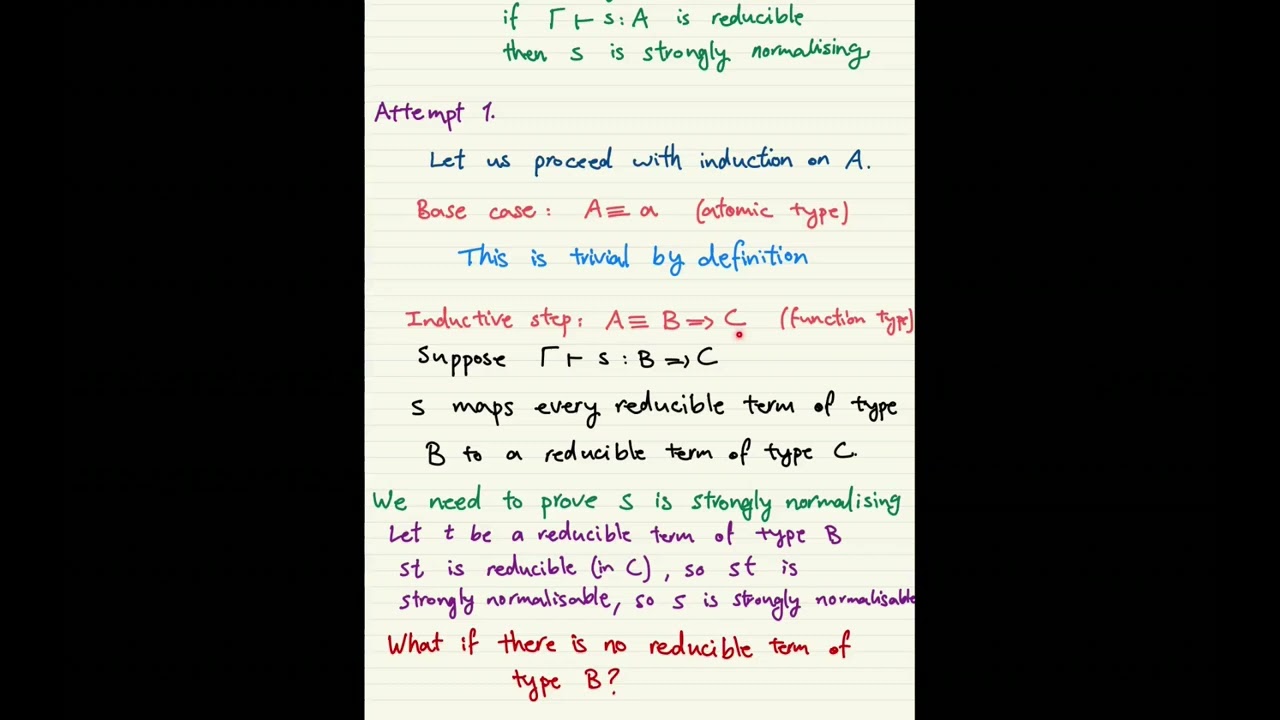 if Γ ⊢ s : A is reducible
then s is strongly normalising
Attempt 1.
Let us proceed with induction on A.
Base case: A ≡ a (atomic type)
This is trivial by definition
Inductive step: A ≡ B ⇒ C (function type)
Suppose Γ ⊢ s : B ⇒ C
s maps every reducible term of type
B to a reducible term of type C.
We need to prove s is strongly normalising
Let t be a reducible term of type B
st is reducible (in C), so st is
strongly normalisable, so s is strongly normalisable
What if there is no reducible term of
type B?